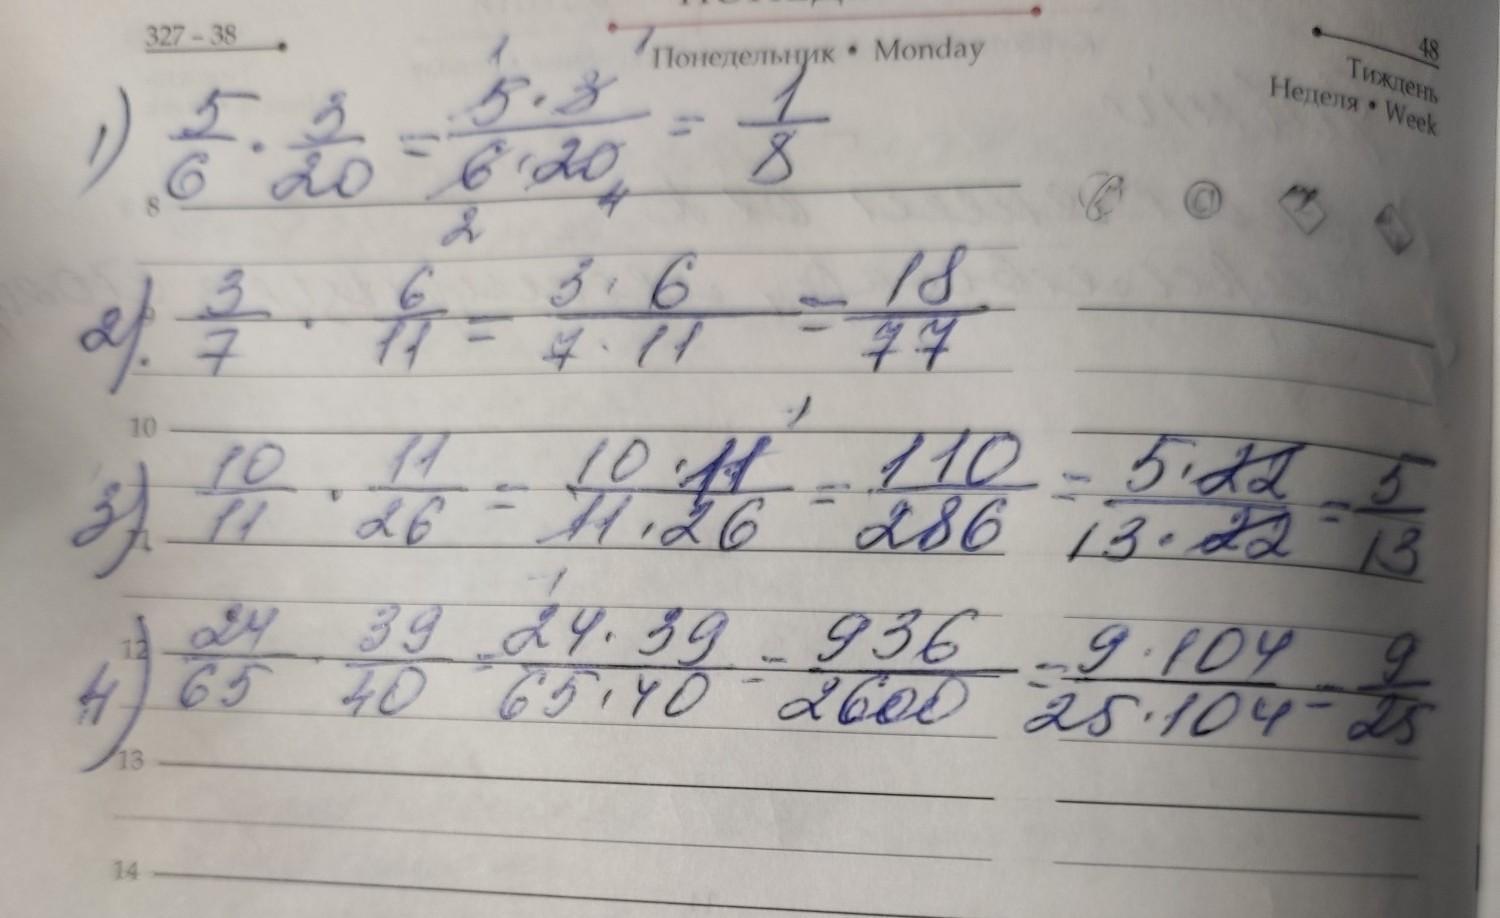 327 – 38
Понедельник • Monday
48
Тиждень
Неделя • Week
1) 5/6 · 3/20 = 5·3/6·20 = 1/8
1 1
2 4
8
2) 3/7 · 6/11 = 3·6/7·11 = 18/77
10
3) 10/11 · 11/26 = 10·11/11·26 = 110/286 = 5·22/13·22 = 5/13
1
1
12
4) 24/65 · 39/40 = 24·39/65·40 = 936/2600 = 9·104/25·104 = 9/25
13
14